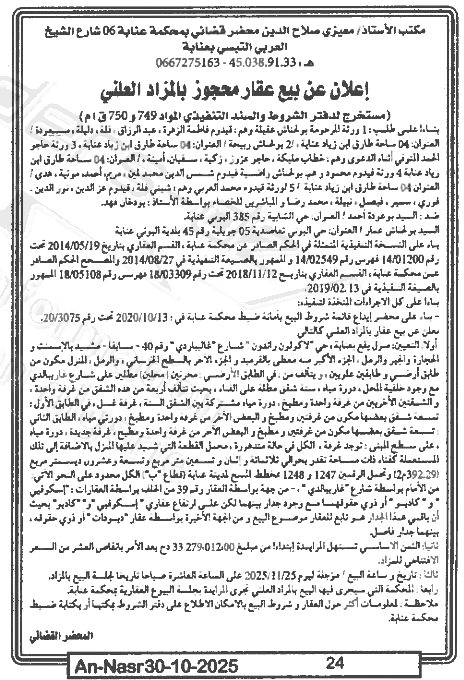 مكتب الأستاذ/ معيزي صلاح الدين محضر قضائي بمحكمة عنابة 06 شارع الشيخ
العربي التبسي بعنابة
هـ : 45.038.91.33- 0667275163
إعلان عن بيع عقار محجوز بالمزاد العلني
(مستخرج لدفتر الشروط والسند التنفيذي المواد 749 و 750 ق إ م)
بناءا على طلب : 1 ورثة المرحومة بولخناش عقيلة وهم: قيدوم فاطمة الزهرة، عبد الرزاق، فلة، دليلة،
العنوان: 04 ساحة طارق ابن زياد عنابة /2 بولخناش ربيعة/ العنوان: 04 ساحة طارق ابن زياد عنابة، 3 ورثة حاجو
أحمد المتوفى أثناء الدعوى وهم: خطاب مليكة، حاجو عزوز، زكية، سفيان، أمينة، /العنوان: 04 ساحة طارق ابن
زياد عنابة 4 ورثة قيدوم محمود و هم بولخناش راضية قيدوم شمس الدين محمد لمين، مريم، أحمد، مونية، هدى/
العنوان 04 ساحة طارق ابن زياد عنابة / 5 لورثة قيدوم محمد العربي وهم: شبيني فلة، قيدوم عز الدين، نور الدين،
فوزي، سمير، فيصل، نبيلة، محمد رضا و المباشرين للخصام بواسطة الأستاذ: بودخان فهد.
ضد : السيد بوعردة أحمد/ العنوان: حي الشابية رقم 385 البوني عنابة.
السيد بولخناش عمار/ العنوان: حي البوني تعاضدية 05 جويلية رقم 45 بلدية البوني عنابة
بناء على النسخة التنفيذية المتمثلة في الحكم الصادر عن محكمة عنابة، القسم العقاري بتاريخ 2014/05/19 تحت
رقم 14/01200 فهرس رقم 14/02549 و الممهور بالصيغة التنفيذية في 2014/08/27 والمصحح بالحكم الصادر
عن محكمة عنابة، القسم العقاري بتاريخ 2018/11/12 تحت رقم 18/03309 فهرس رقم 18/05108 الممهور
بالصيغة التنفيذية في 2019/02/13.
بناءا على كل الاجراءات المتخذة لتنفيذه:
- بناء على محضر إيداع قائمة شروط البيع بأمانة ضبط محكمة عنابة في : 2020/10/13 تحت رقم 20/3075،
يعلن عن بيع عقار بالمزاد العلني كالتالي
أولا: التعيين: منزل يقع بعنابة، حي "لاكولون راندون" شارع "غاليباردي" رقم 40 - سابقا- مشيد بالإسمنت و
الحجارة والجير والرمل، الجزء الأكبر منه مغطى بالقرميد و الجزء الآخر بالسطح الخرساني، والرمل، المنزل مكون من
طابق أرضي و طابقين علويين، و يتألف من : في الطابق الأرضي: مخزنين (محلين) مطلين على شارع غاريبالدي
مع وجود خلفية للمحل، دورة مياه، ستة شقق مطلة على الفناء، بحيث تتألف أربعة من هذه الشقق من غرفة واحدة،
و الشقتين الأخريين من غرفة واحدة ومطبخ، دورة مياه مشتركة بين الشقق الستة، غرفة غسل، في الطابق الأول:
تسعة شقق بعضها مكون من غرفتين ومطبخ و البعض الآخر من غرفة واحدة ومطبخ، دورتي مياه، الطابق الثاني
: تسعة شقق بعضها مكون من غرفتين و مطبخ و البعض الآخر من غرفة واحدة ومطبخ، غرفة جديدة، دورة مياه
، على سطح المبنى : توجد غرفة، الكل في حالة متدهورة، محمل القطعة التي شيد عليها المنزل بالاضافة إلى تلك
المستعملة كفناء، ذات مساحة تقدر بحوالي ثلاثمائة و إثنان و تسعين متر مربع وتسعة وعشرون ديسمتر مربع
(392.29م2) وتحمل الرقمين 1247 و 1248 مخطط المسح لمدينة عنابة (قطاع "ب") الكل محدود على النحو الآتي:
من الأمام بواسطة شارع "غاريبالدي"، - من جهة بواسطة العقار رقم 39 من الخلف بواسطة العقارات : "إسكوفيي
" و "كاديو" أو ذوي حقوقهما مع وجود جدار بينهما لكن على ارتفاع عقاري "إسكوفيي" و "كاديو" بحيث
أن باقي هذا الجدار هو تابع للعقار موضوع البيع و من الجهة الأخيرة بواسطة عقار "ديبودات" أو ذوي حقوقه،
بينهما جدار فاصل.
ثانيا: الثمن الأساسي تستهل المزايدة إبتداءا من مبلغ 33 279.012/00 دج بعد الأمر بانقاص العشر من السعر
الافتتاحي للمزاد.
ثالثا : تاريخ و ساعة البيع / مؤجلة ليوم 2025/11/25 على الساعة العاشرة صباحا تاريخا لجلسة البيع بالمزاد.
رابعا : المحكمة التي سيجرى فيها البيع بالمزاد العلني تجرى المزايدة بجلسة البيوع العقارية بمحكمة عنابة.
ملاحظة : لمعلومات أكثر حول العقار و شروط البيع بالامكان الاطلاع على دفتر الشروط بمكتبنا أو بكتابة ضبط
محكمة عنابة.
المحضر القضائي
An-Nasr30-10-2025
24